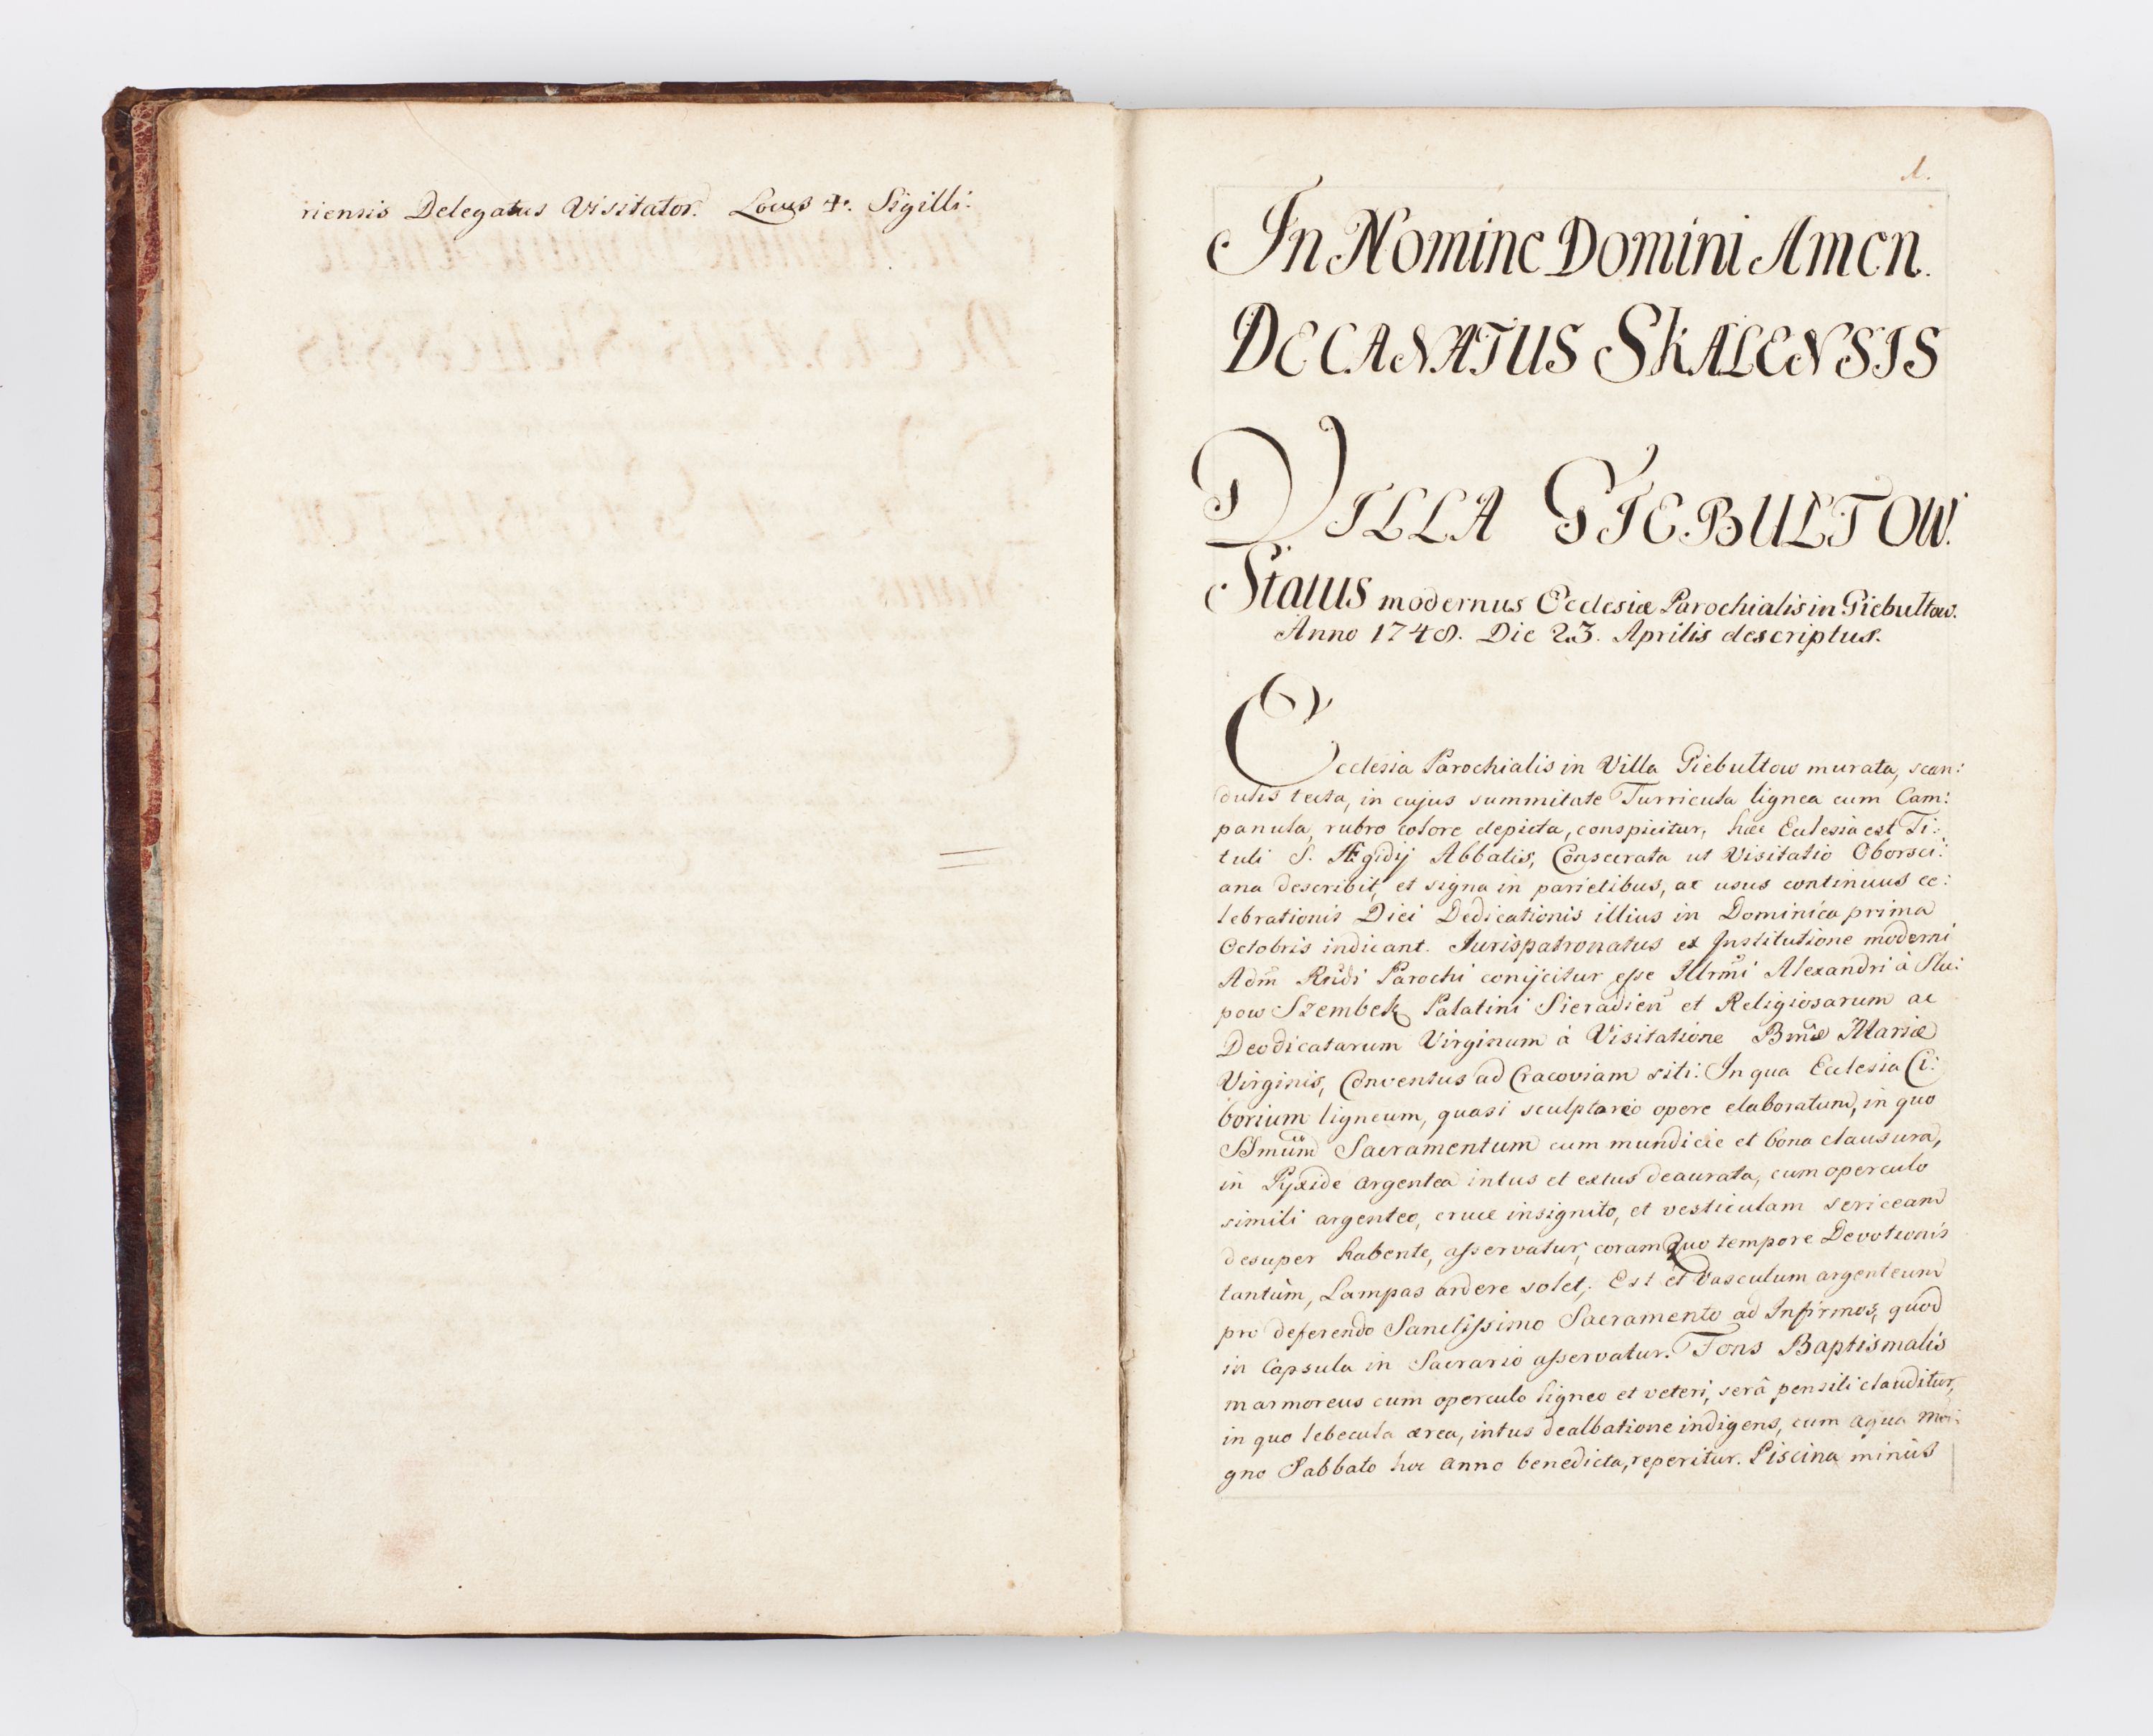 riensis Delegatus Visitator. Locus ✝. Sigilli.
1.
In Nomine Domini Amen.
DECANATUS SKALENSIS
VILLA GIEBULTOW.
Status modernus Ecclesiæ Parochialis in Giebultow.
Anno 1748. Die 23. Aprilis descriptus.
Ecclesia Parochialis in Villa Giebultow murata, scan:
dulis tecta, in cujus summitate Turricula lignea cum Cam:
panula, rubro colore depicta, conspicitur, hæc Ecclesia est Ti:
tuli S. Ægidij Abbatis, Consecrata ut Visitatio Oborsci:
ana describit, et signa in parietibus, ac usus continuus ce:
lebrationis Diei Dedicationis illius in Dominica prima
Octobris indicant. Jurispatronatus ex Institutione moderni
Adm̃ Rñdi Parochi conijcitur esse Illrm̃i Alexandri à Slu:
pow Szembek Palatini Sieradien̄ et Religiosarum ac
Deodicatarum Virginum à Visitatione Bm̃æ Mariæ
Virginis, Conventus ad Cracoviam siti. In qua Ecclesia Ci:
borium ligneum, quasi sculptoreo opere elaboratum, in quo
SSmum̃ Sacramentum cum mundicie et bona clausura,
in Pyxide argentea intus et extus deaurata, cum operculo
simili argenteo, cruce insignito, et vesticulam sericeam
desuper habente, asservatur, coram Quo tempore Devotionis
tantùm, Lampas ardere solet. Est et Vasculum argenteum
pro deferendo Sanctissimo Sacramento ad Infirmos, quod
in Capsula in Sacrario asservatur. Fons Baptismalis
marmoreus cum operculo ligneo et veteri, serâ pensili clauditur,
in quo lebecula ærea, intus dealbatione indigens, cum aqua Ma:
gno Sabbato hoc anno benedicta, reperitur. Piscina minùs